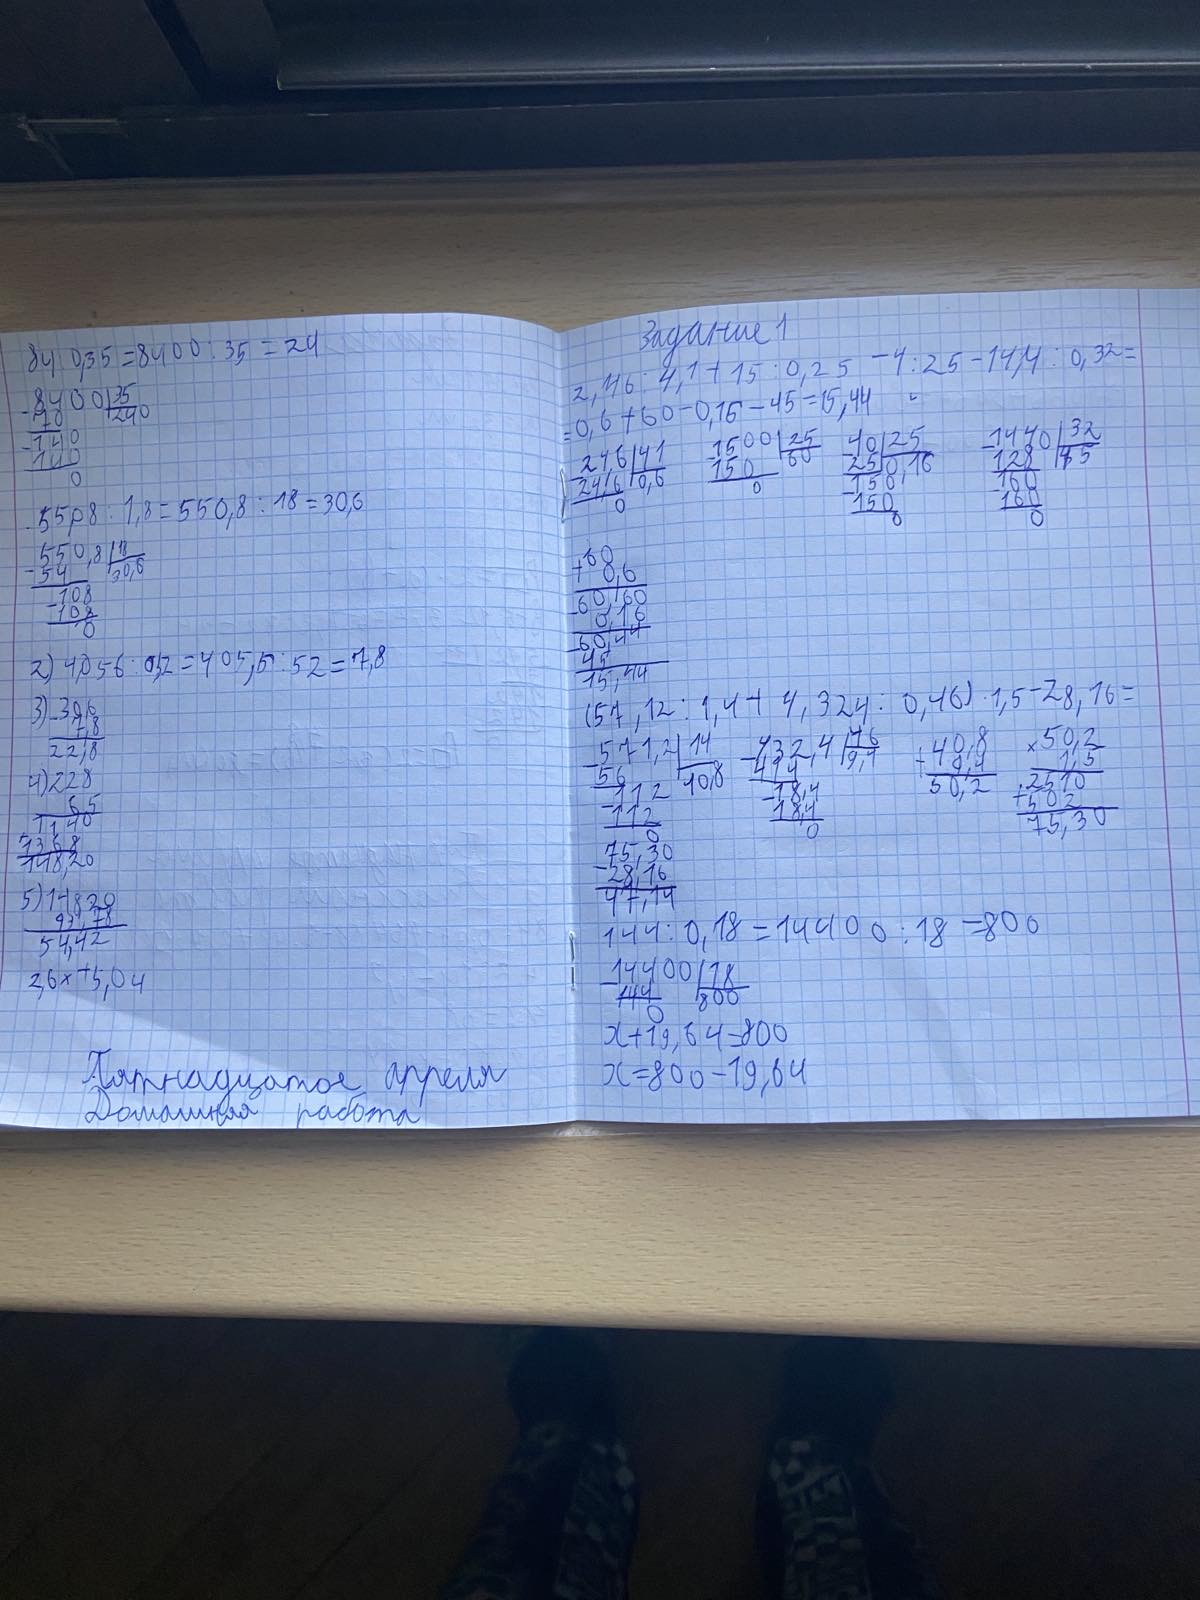 84:0,35=8400:35=24
8400 35
-70 240
-140
140
0
55,08:1,8=550,8:18=30,6
-550,8 18
54 30,6
-108
108
0
2) 4,056:0,52=405,6:52=7,8
3) -30,6
7,8
22,8
4) 228
65
1140
1368
148,20
5) 14820
93,78
54,42
2,6x+5,04
Пятнадцатое апреля
Домашняя работа
Задание 1
2,46:4,1+15:0,25-4:25-14,4:0,32=
=0,6+60-0,16-45=15,44
24,6 41 -1500 25 -40 25 -1440 32
24,6 0,6 150 60 25 0,16 128 45
0 0 -150 160
150 -160
0 0
+60
0,6
-60,60
0,16
-60,44
45
15,44
(57,12:1,4+4,324:0,46)·1,5-28,16=
-571,2 14 -432,4 46 +40,8 ×50,2
56 40,8 414 9,4 9,4 1,5
-112 -18,4 50,2 +2510
112 18,4 502
0 0 75,30
-75,30
28,16
47,14
144:0,18=14400:18=800
-14400 18
144 800
0
x+19,64=800
x=800-19,64